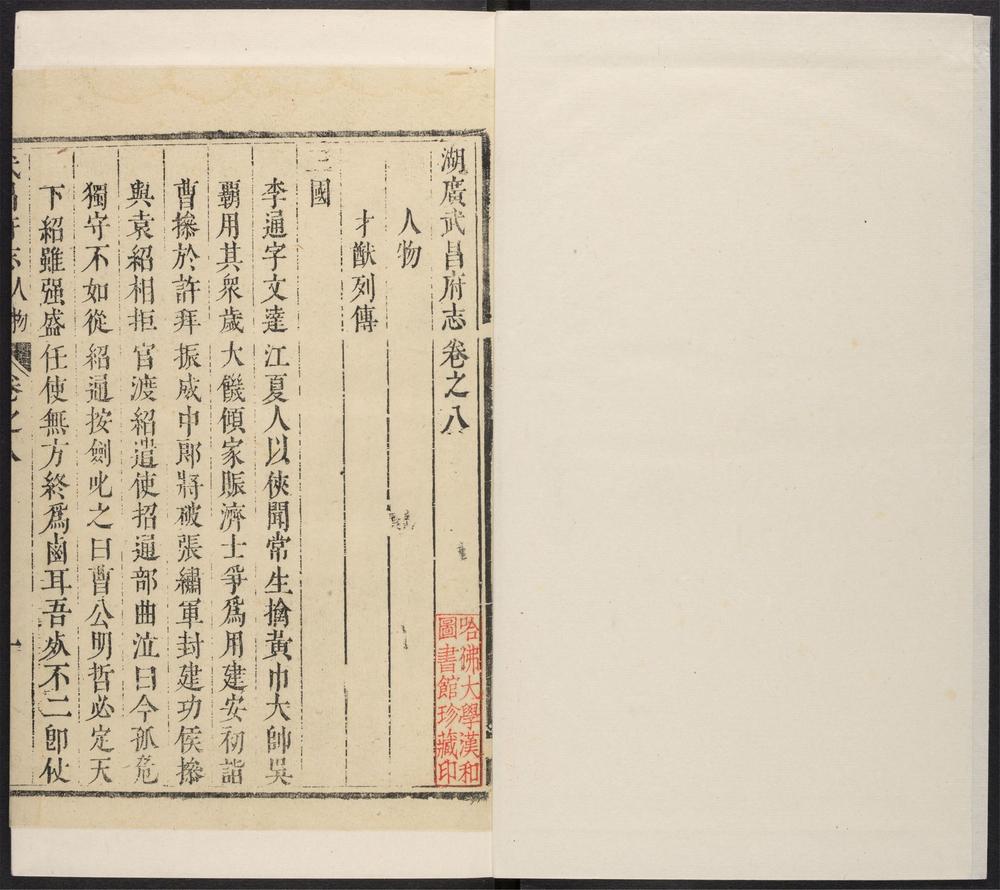 湖廣武昌府志卷之八
哈佛大學漢和
圖書館珍藏印
人物
才猷列傳
三國
李通字文達江夏人以俠聞常生擒黃巾大帥吳
覇用其衆歲大饑傾家賑濟士爭爲用建安初詣
曹操於許拜振威中郎將破張繡軍封建功侯操
與袁紹相拒官渡紹遣使招通部曲泣曰今孤危
獨守不如從紹通按劍叱之曰曹公明哲必定天
下紹雖强盛任使無方終爲鹵耳吾死不二卽仗
人物
卷之八
一